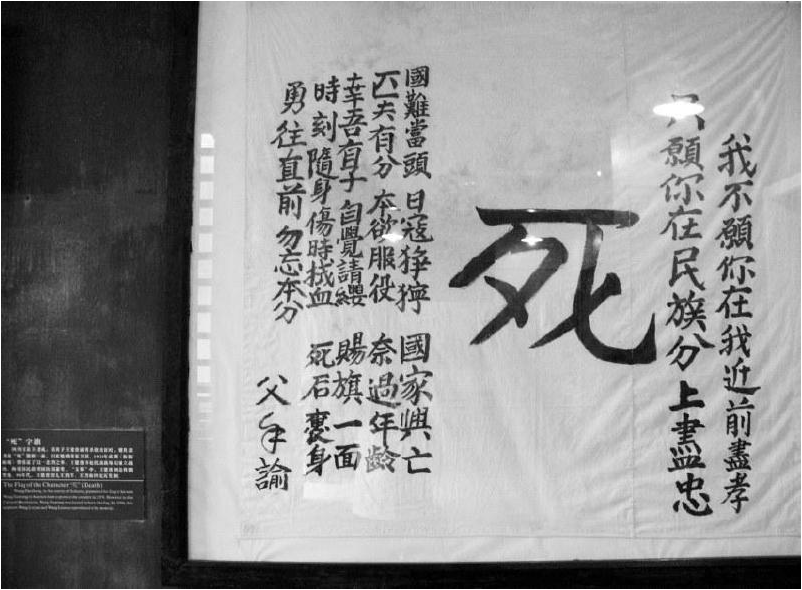 我不願你在我近前盡孝
只願你在民族分上盡忠
死
國難當頭 日寇猙獰 國家興亡
匹夫有分 本欲服役 奈過年齡
幸吾有子 自覺請纓 賜旗一面
時刻隨身 傷時拭血 死后裹身
勇往直前 勿忘本分
父手諭
“死”字旗
The Flag of the Character “死” (Death)